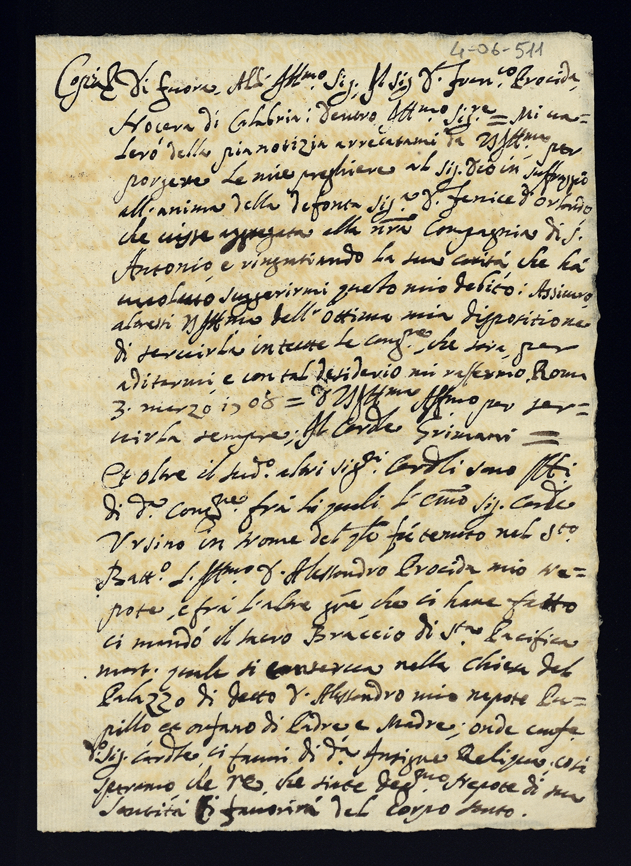 4-06-511
Copia Di fuora, All' Ill.mo Sig. Il Sig. D. Fran.co Procida,
Nocera di Calabria: dentro, Ill.mo Sig.re = Mi va-
lerò della pia notizia arrecatami da VS Ill.ma per
porgere le mie preghiere al Sig. Dio in suffraggio
all'anima della defonta Sig.ra D. Fenice d'Orlando
che visse aggregata alla nra Compagnia di S.
Antonio e ringratiando la sua carità che hà
voluto suggerirmi questo mio debito: Assicuro
altresi VS Ill.ma dell'ottima mia dispositione
di servirla in tutte le cong.re, che sarà per
aditarmi, e con tal desiderio mi rafermo, Roma
3. marzo 1708 = D VS Ill.ma Aff.mo per ser=
virla sempre, Il Card.le Grimani =
Et oltre il sud.o altri Sig.ri Card.li sono
di d.a Cong.ne frà li quali l'Em.o Sig. Card.le
Ursino in nome del q.le fù tenuto nel S.to
Batt.o l'Ill.mo D. Alessandro Procida mio ne=
pote, e frà l'altre gre che ci have fatto
ci mandò il sacro Braccio di S.ta Pacifica
mart. quale si conserva nella Chiesa del
Palazzo di detto D. Alessandro mio nepote Pu=
pillo et orfano di Padre e Madre; onde come
d.o Sig. Card.le ci favorì di d.a Insigne Reliquia, così
speramo che VE, che siate deg.mo Nepote di sua
Santità ci favorirà del Corpo Santo.